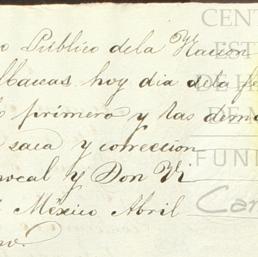 o Público dela Nacion
llamas, hoy dia dela fe
primero y las dema
saca y correccion
vocal y Don Vi
Mexico Abril
CEN
EST
DE
DE
FUND
Car